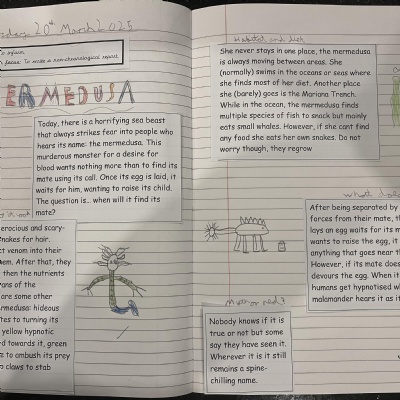 20th March 2025
to inform
focus: To write a non-chronological report
ERMEDUSA
Today, there is a horrifying sea beast
that always strikes fear into people who
hears its name: the mermedusa. This
murderous monster for a desire for
blood wants nothing more than to find its
mate using its call. Once its egg is laid, it
waits for him, wanting to raise its child.
The question is... when will it find its
mate?
erocious and scary-
snakes for hair.
ct venom into their
em. After that, they
then the nutrients
ans of the
are some other
rmedusa: hideous
tes to turning its
yellow hypnotic
d towards it, green
to ambush its prey
claws to stab
Habitat and diet
She never stays in one place, the mermedusa
is always moving between areas. She
(normally) swims in the oceans or seas where
she finds most of her diet. Another place
she (barely) goes is the Mariana Trench.
While in the ocean, the mermedusa finds
multiple species of fish to snack but mainly
eats small whales. However, if she cant find
any food she eats her own snakes. Do not
worry though, they regrow
what does
After being separated by
forces from their mate, th
lays an egg waits for its m
wants to raise the egg, it
anything that goes near th
However, if its mate does
devours the egg. When it
humans get hypnotised wh
malamander hears it as it
Myth or real?
Nobody knows if it is
true or not but some
say they have seen it.
Wherever it is it still
remains a spine-
chilling name.